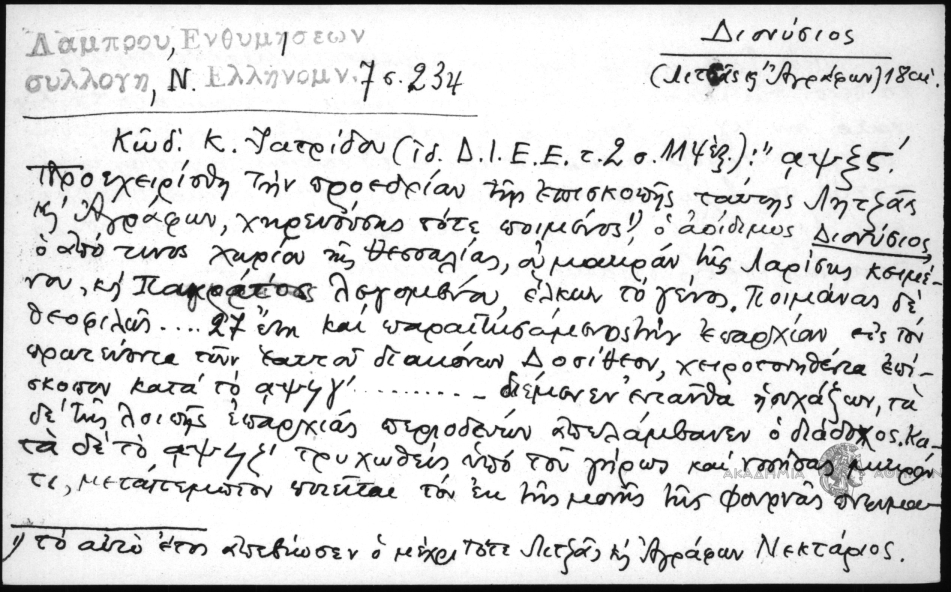 Λάμπρου, Ἐνθυμήσεων
συλλογή, Ν. Ἑλληνομν. 7 σ. 234
Διονύσιος
(Λιτζᾶς κ' Ἀγράφων) 18 αἰ.
Κῶδ. Κ. Ἰατρίδου (ἰδ. Δ.Ι.Ε.Ε. τ. 2 σ. 114 ἑξ.): " αψξς΄.
Προεχειρίσθη τὴν προεδρίαν τῆς ἐπισκοπῆς ταύτης Λητζᾶς
κ' Ἀγράφων, χηρευούσης τότε ποιμένος 1), ὁ ἀοίδιμος Διονύσιος,
ὁ ἀπό τινος χωρίου τῆς Θεσσαλίας, οὐ μακράν τῆς Λαρίσης κειμέ-
νου, κ' λεγομένου, ἕλκων τὸ γένος. Ποιμάνας δὲ
θεοφιλῶς .... 27 ἔτη καὶ παραιτησάμενος τὴν ἐπαρχίαν εἰς τὸν
πρωτεύοντα τῶν ἑαυτοῦ διακόνων Δοσίθεον, χειροτονηθέντα ἐπί-
σκοπον κατά τὸ αψϟγ΄ .......... διέμενεν ἐνταῦθα ἡσυχάζων, τὰ
δὲ τῆς λοιπῆς ἐπαρχίας περιοδεύων ἀπελάμβανεν ὁ διάδοχος. Κα-
τὰ δὲ τὸ αψϟζ΄ τρυχωθείς ὑπό τοῦ γήρως καὶ νοσήσας μικρόν
τι, μετάπεμπτον ποιεῖται τόν ἐκ τῆς μονῆς τῆς Φουρνᾶς πνευμα-
ΑΚΑΔΗΜΙΑ ΑΘΗΝΩΝ
1) τὸ αὐτὸ ἔτος ἀπεβίωσεν ὁ μέχρι τότε Λιτζᾶς κ' Ἀγράφων Νεκτάριος.